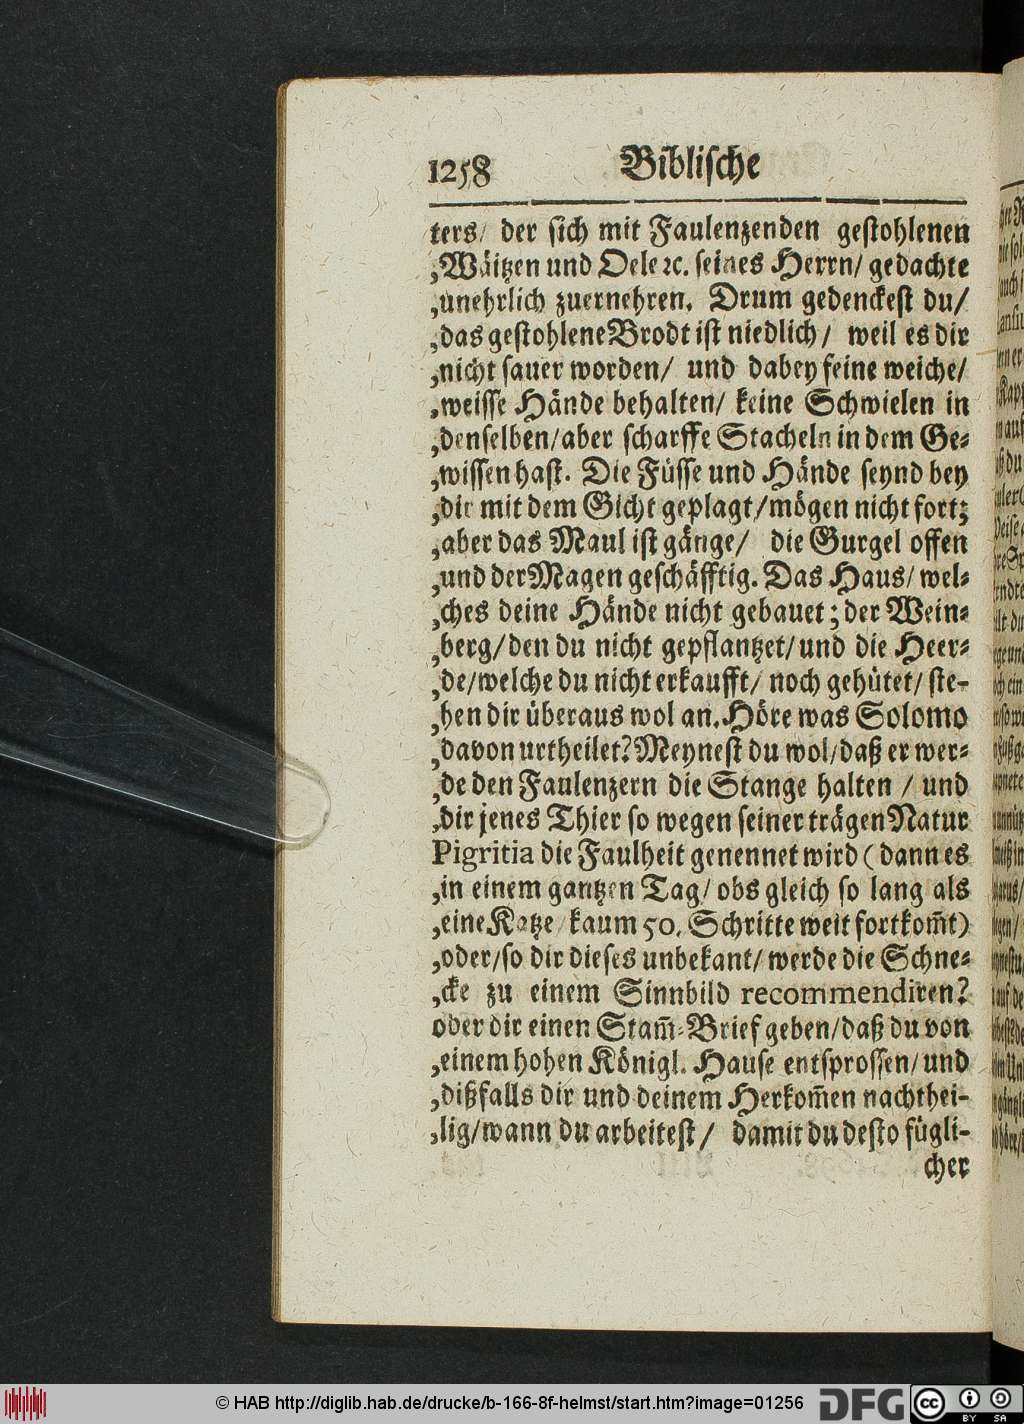 1258 Biblische
ters/ der sich mit Faulenzenden gestohlenen
„Wäitzen und Oele ꝛc. seines Herrn/ gedachte
„unehrlich zuernehren. Drum gedenckest du/
„das gestohlene Brodt ist niedlich/ weil es dir
„nicht sauer worden/ und dabey feine weiche/
„weisse Hände behalten/ keine Schwielen in
„denselben/ aber scharffe Stacheln in dem Ge⸗
„wissen hast. Die Füsse und Hände seynd bey
„dir mit dem Gicht geplagt/ mögen nicht fort;
„aber das Maul ist gänge/ die Gurgel offen
„und der Magen geschäfftig. Das Haus/ wel⸗
„ches deine Hände nicht gebauet; der Wein⸗
„berg/ den du nicht gepflantzet/ und die Heer⸗
„de/ welche du nicht erkaufft/ noch gehütet/ ste-
„hen dir überaus wol an. Höre was Solomo
„davon urtheilet? Meynest du wol/ daß er wer⸗
„de den Faulenzern die Stange halten / und
„dir jenes Thier so wegen seiner trägen Natur
Pigritia die Faulheit genennet wird (dann es
„in einem gantzen Tag/ obs gleich so lang als
„eine Katze/ kaum 50. Schritte weit fortkom̃t)
„oder/ so dir dieses unbekant/ werde die Schne⸗
„cke zu einem Sinnbild recommendiren?
oder dir einen Stam̃⸗Brief geben/ daß du von
„einem hohen Königl. Hause entsprossen/ und
„dißfalls dir und deinem Herkom̃en nachthei-
„lig/ wann du arbeitest/ damit du desto fügli-
cher
© HAB http://diglib.hab.de/drucke/b-166-8f-helmst/start.htm?image=01256
DFG
cc
BY SA